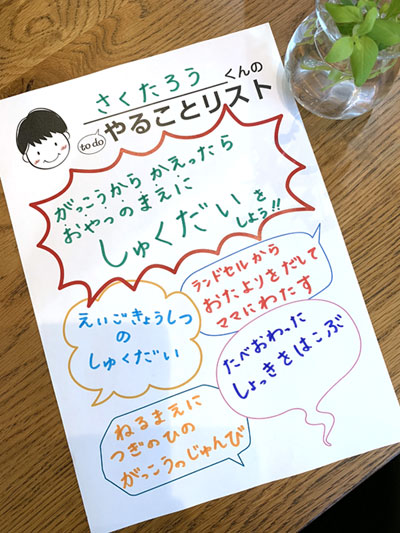 さくたろう くんの
to do やることリスト
がっこうから かえったら
おやつのまえに
しゅくだい を
しよう!!
ランドセルから
おたよりをだして
ママにわたす
えいごきょうしつ
の
しゅくだい
たべおわった
しょっきをはこぶ
ねるまえに
つぎのひの
がっこうのじゅんび